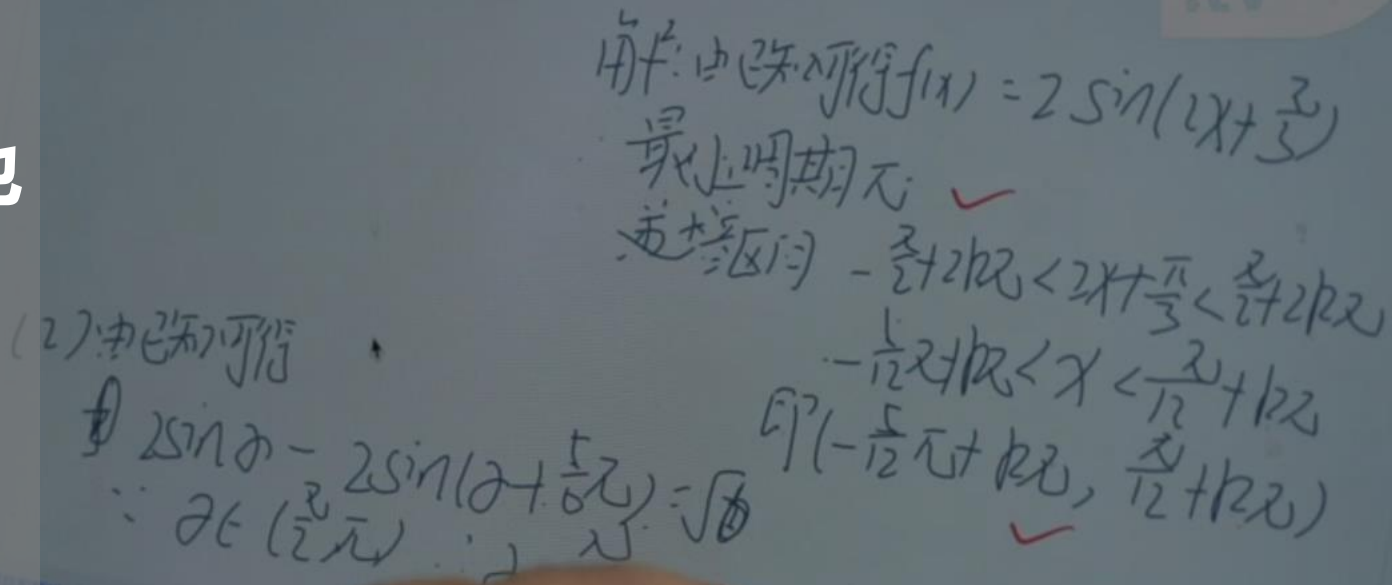 解：由已知可得f(x) = 2sin(2x+π/3)
最小正周期π
递增区间 -π/2+2kπ<2x+π/3<π/2+2kπ
-5/12π+kπ<x<π/12+kπ
即(-5/12π+kπ, π/12+kπ)
(2)由已知可得
2sinα-2sin(α+5/6π)=√6
∵α∈(π/2,π)